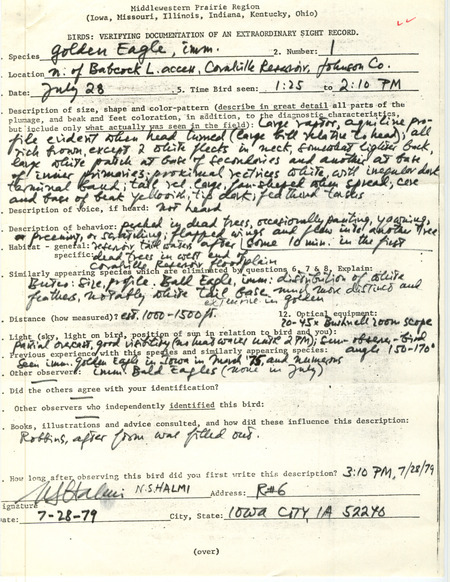 Middlewestern Prairie Region
(Iowa, Missouri, Illinois, Indiana, Kentucky, Ohio)
BIRDS: VERIFYING DOCUMENTATION OF AN EXTRAORDINARY SIGHT RECORD.
. Species golden Eagle, imm. 2. Number: 1
. Location n. of Babcock L. access, Coralville Reservoir, Johnson Co.
. Date: July 28 5. Time Bird seen: 1:25 to 2:10 PM
. Description of size, shape and color-pattern (describe in great detail all parts of the
plumage, and beak and feet coloration, in addition, to the diagnostic characteristics,
but include only what actually was seen in the field): Large raptor, aquiline pro-
file evident when head turned (large bill relative to head); all
rich brown, except 2 white flecks in neck, somewhat lighter back,
large white patch at base of secondaries and another at base
of inner primaries; proximal rectrices white, with irregular dark
terminal band; tail rel. large, fan-shaped when spread; cere
and base of beak yellowish; tip dark; feathered tarsus
. Description of voice, if heard: not heard
. Description of behavior: perched in dead trees, occasionally panting, yawning,
or preening, or scratching; flapped wings and flew into another tree
. Habitat - general: reservoir tail waters after some 10 min. in the first
specific: dead trees in west end
Coralville Reservoir floodplain
. Similarly appearing species which are eliminated by questions 6, 7 & 8, Explain:
Buteos: Size, profile. Bald Eagle, imm: distribution of white
feathers, notably white tail base much more distinct and
extensive in golden
. Distance (how measured): est. 1000-1500 ft. 12. Optical equipment:
20-45x Bushnell zoom scope
. Light (sky, light on bird, position of sun in relation to bird and you):
partial overcast, good visibility (no heat waves until 2 PM); sun-observer-bird
angle 150-170°
. Previous experience with this species and similarly appearing species:
Seen imm. golden Eagle in Iowa in March 75, and numerous
imm. Bald Eagles (none in July)
. Other observers:
. Did the others agree with your identification?
. Other observers who independently identified this bird:
. Books, illustrations and advice consulted, and how did these influence this description:
Robbins, after form was filled out.
. How long after observing this bird did you first write this description? 3:10 PM, 7/28/79
N.S. HALMI Address: R#6
Signature
Date: 7-28-79 City, State: IOWA CITY, IA 52240
(over)